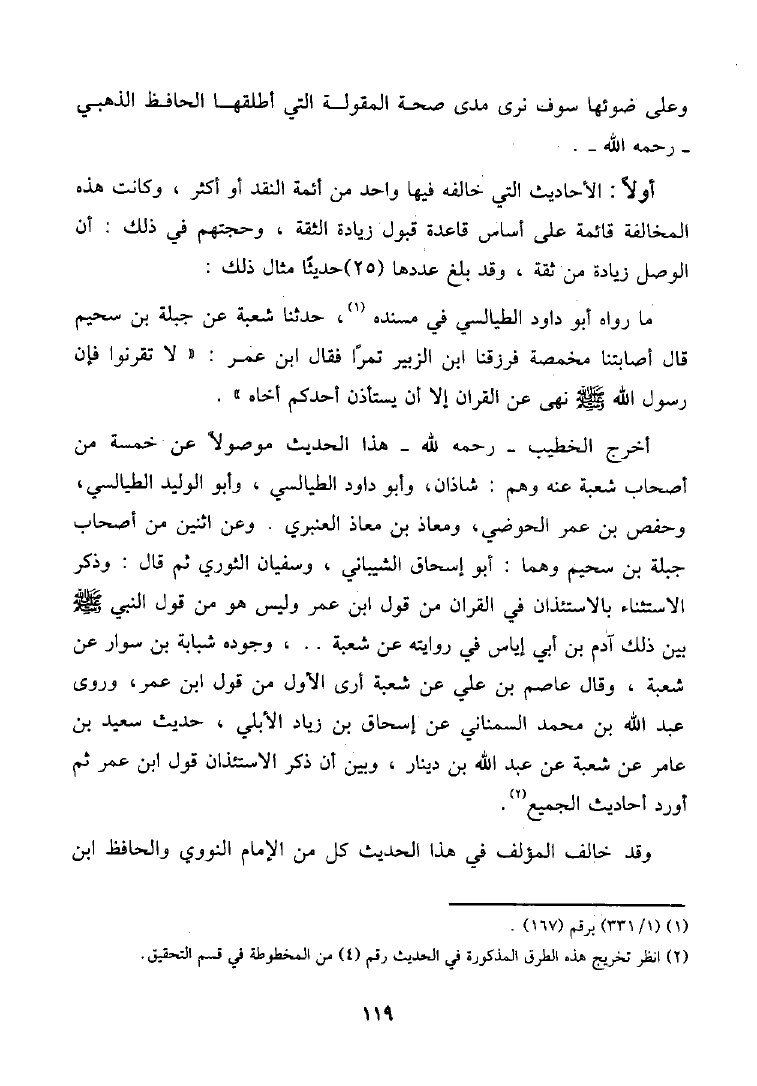 وعلى ضوئها سوف نرى مدى صحة المقولة التي أطلقها الحافظ الذهبي
ـ رحمه الله ـ .
أولاً : الأحاديث التي خالفه فيها واحد من أئمة النقد أو أكثر ، وكانت هذه
المخالفة قائمة على أساس قاعدة قبول زيادة الثقة ، وحجتهم في ذلك : أن
الوصل زيادة من ثقة ، وقد بلغ عددها (٢٥)حديثًا مثال ذلك :
ما رواه أبو داود الطيالسي في مسنده (١)، حدثنا شعبة عن جبلة بن سحيم
قال أصابتنا مخمصة فرزقنا ابن الزبير تمرًا فقال ابن عمر : « لا تقرنوا فإن
رسول الله ﷺ نهى عن القران إلا أن يستأذن أحدكم أخاه » .
أخرج الخطيب ـ رحمه لله ـ هذا الحديث موصولاً عن خمسة من
أصحاب شعبة عنه وهم : شاذان، وأبو داود الطيالسي ، وأبو الوليد الطيالسي،
وحفص بن عمر الحوضي، ومعاذ بن معاذ العنبري . وعن اثنين من أصحاب
جبلة بن سحيم وهما : أبو إسحاق الشيباني ، وسفيان الثوري ثم قال : وذكر
الاستثناء بالاستئذان في القران من قول ابن عمر وليس هو من قول النبي ﷺ
بين ذلك آدم بن أبي إياس في روايته عن شعبة .. ، وجوده شبابة بن سوار عن
شعبة ، وقال عاصم بن علي عن شعبة أرى الأول من قول ابن عمر، وروى
عبد الله بن محمد السمناني عن إسحاق بن زياد الأبلي ، حديث سعيد بن
عامر عن شعبة عن عبد الله بن دينار ، وبين أن ذكر الاستئذان قول ابن عمر ثم
أورد أحاديث الجميع(٢).
وقد خالف المؤلف في هذا الحديث كل من الإمام النووي والحافظ ابن
(١) (٣٣١/١) برقم (١٦٧) .
(٢) انظر تخريج هذه الطرق المذكورة في الحديث رقم (٤) من المخطوطة في قسم التحقيق.
١١٩